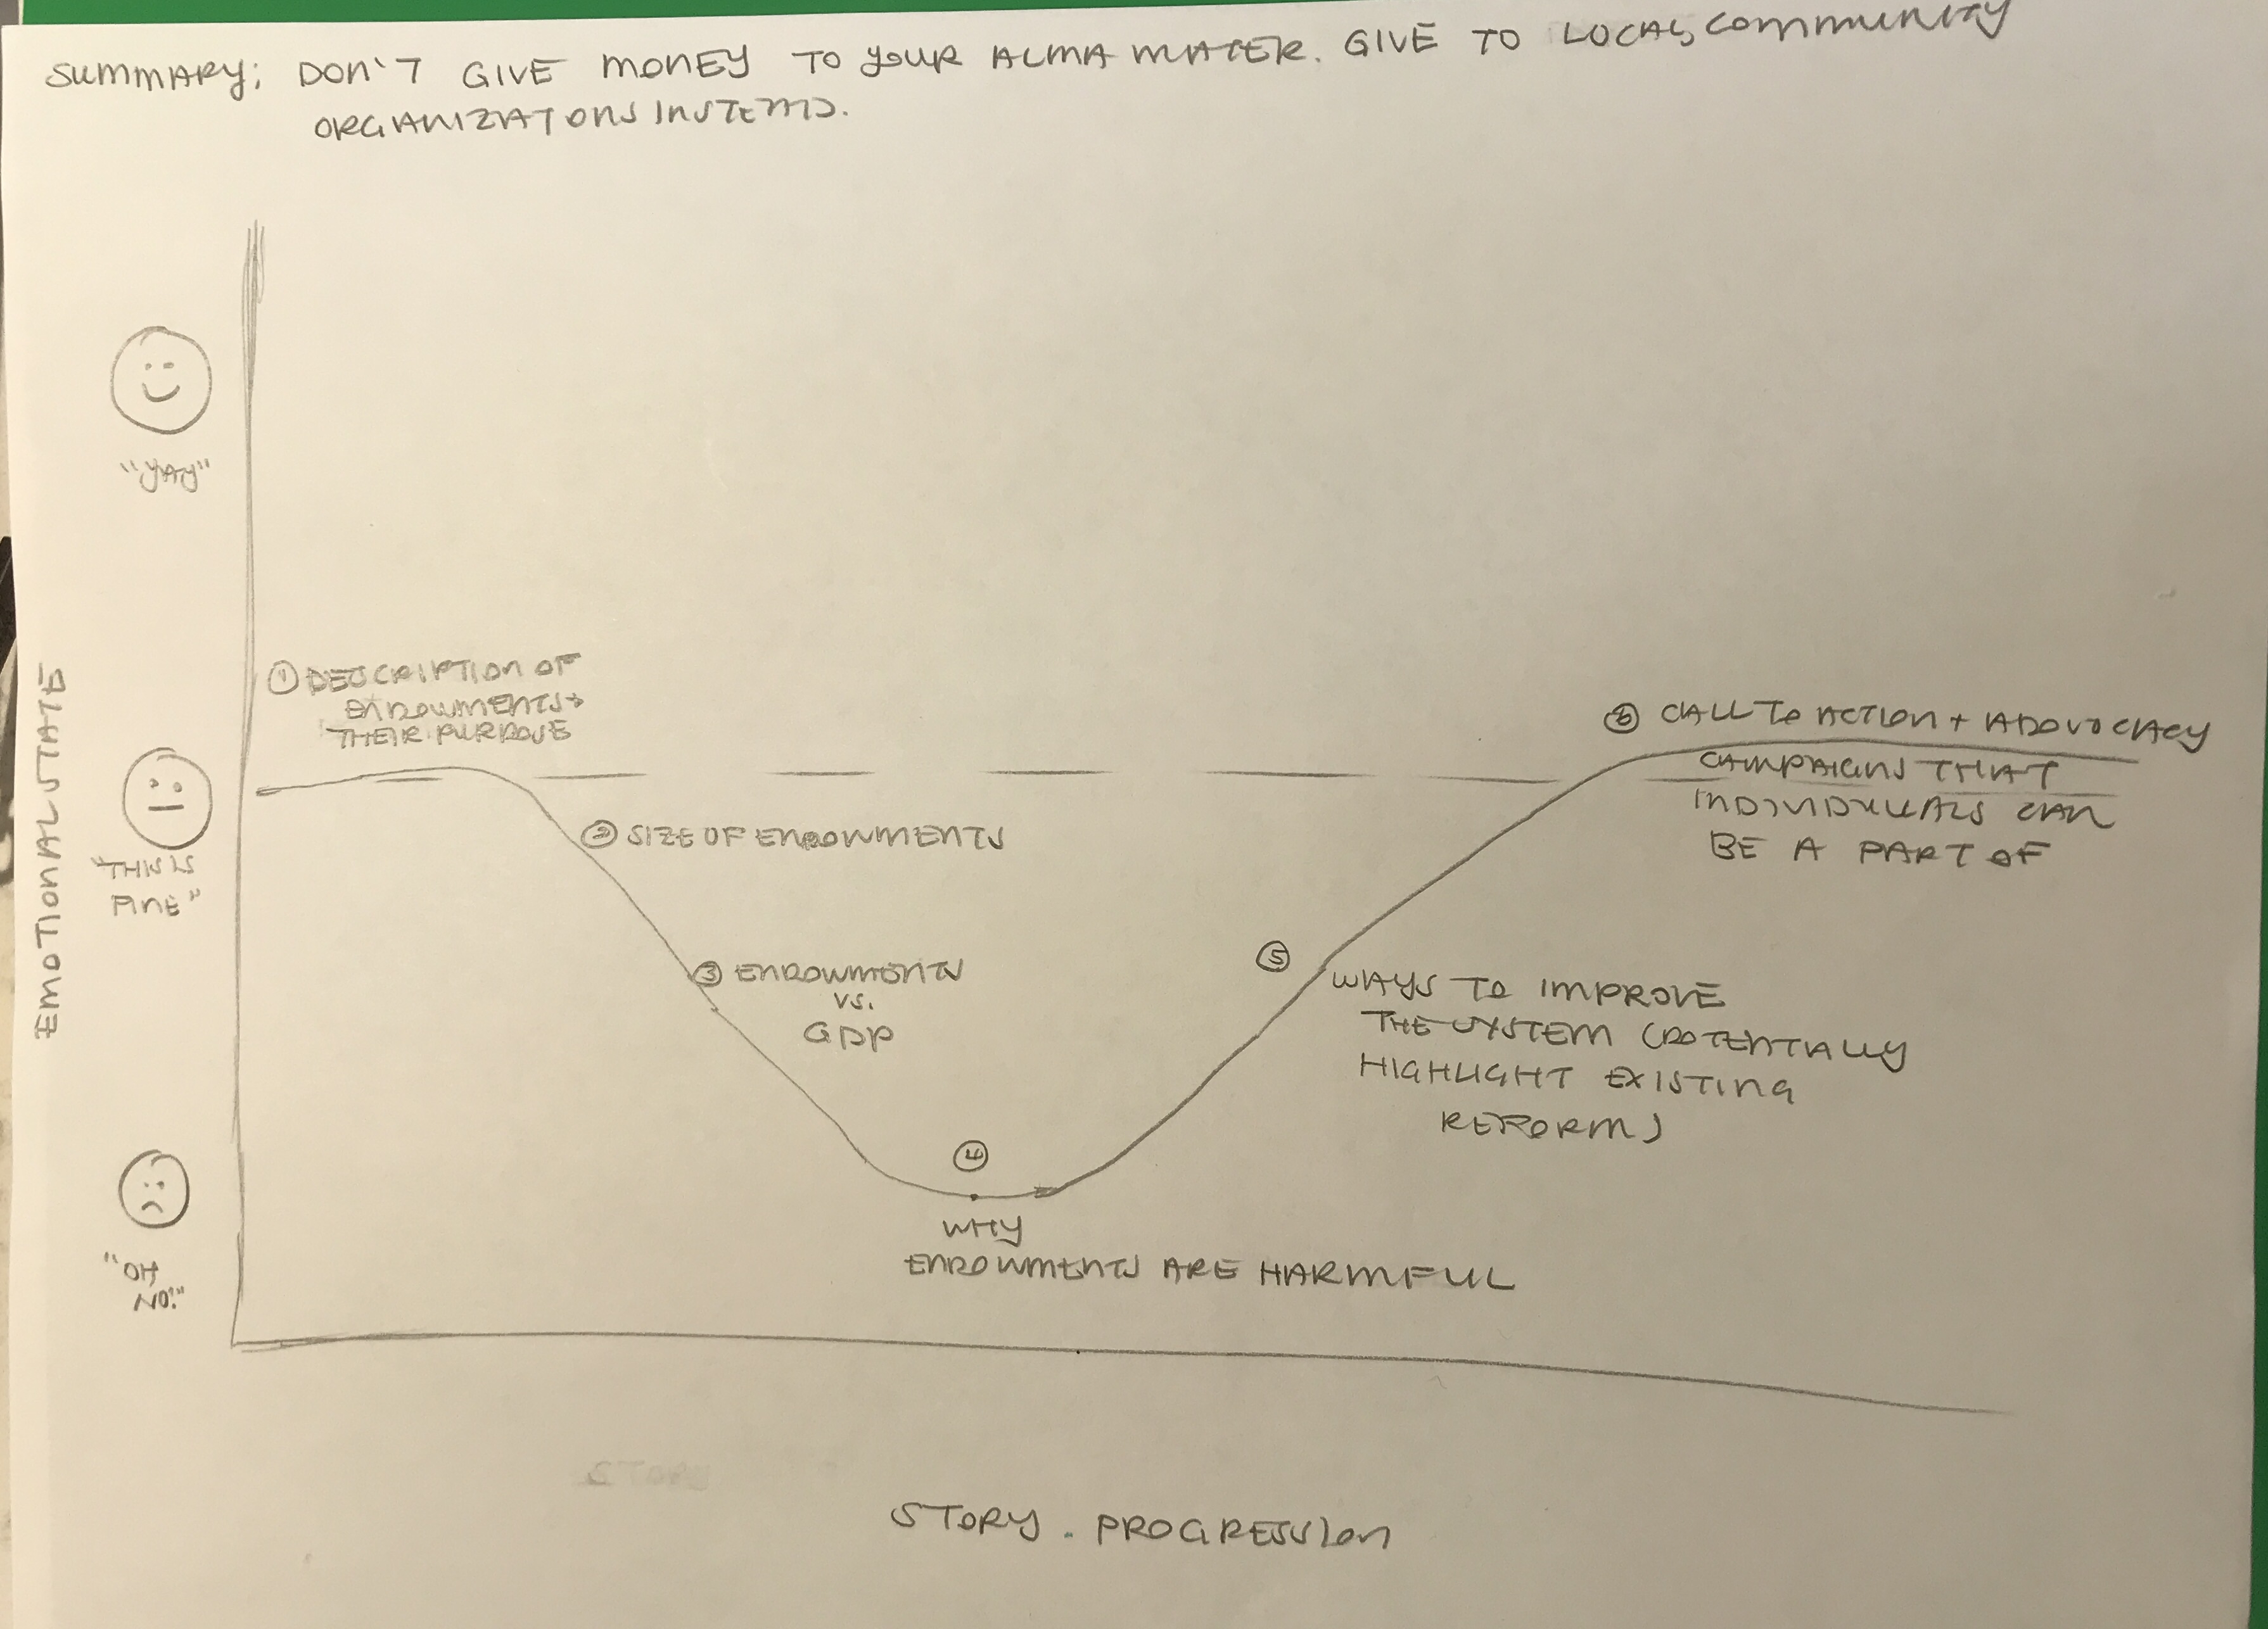 SUMMARY: DON'T GIVE MONEY TO YOUR ALMA MATER. GIVE TO LOCAL COMMUNITY
ORGANIZATONS INSTEAD.
"YAY"
① DESCRIPTION OF
ENDOWMENTS +
THEIR PURPOSE
EMOTIONAL STATE
"THIS IS
FINE"
② SIZE OF ENDOWMENTS
③ ENDOWMENTS
VS.
GDP
④
WHY
ENDOWMENTS ARE HARMFUL
⑤
WAYS TO IMPROVE
THE SYSTEM (POTENTIALLY
HIGHLIGHT EXISTING
REFORM)
⑥ CALL TO ACTION + ADOVOCACY
CAMPAIGNS THAT
INDIVIDUALS CAN
BE A PART OF
"OH
NO!"
STORY PROGRESSION